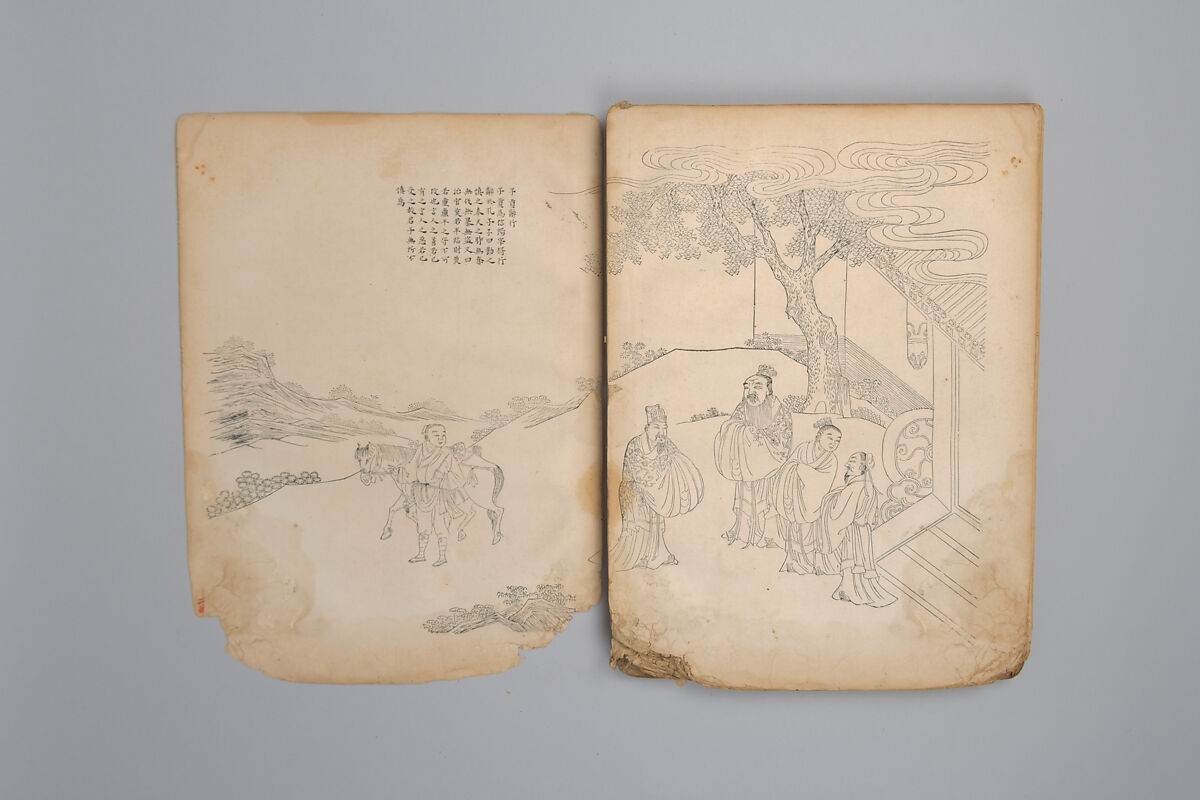 子貢辭行
子貢為信陽宰將行
辭於孔子子曰勤之
慎之奉天之時無奪
無伐無暴無盜又曰
治官莫若平臨財莫
若廉廉平之守不可
攺也言人之善若己
有之言人之惡若己
受之故君子無所不
慎焉